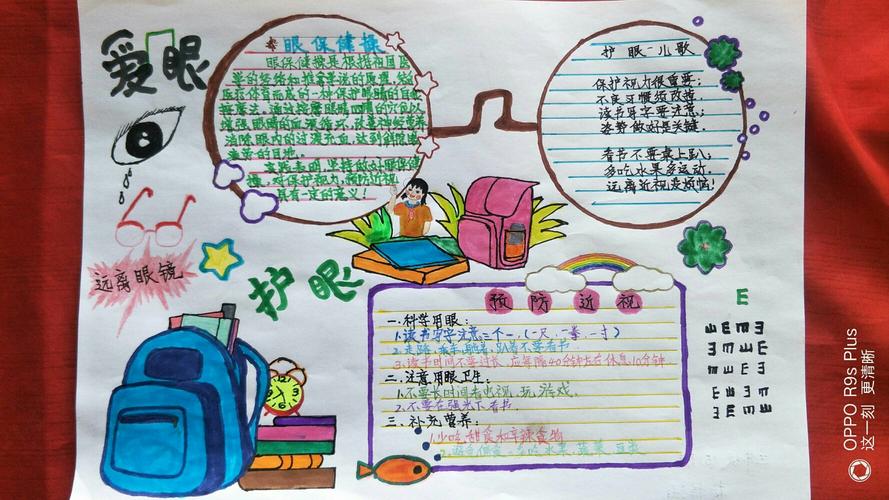 爱眼
眼保健操
眼保健操是根据祖国医
学的经络和推拿学说的原理,结合
医疗体育而成的一种保护眼睛的自我
按摩法。通过按摩眼睛四周的穴位以
增强眼睛的血液循环,改善神经营养
消除眼内的过渡充血,达到消除眼
疲劳的目地。
实践表明,坚持做好眼保健
操,对保护视力,预防近视
具有一定的意义!
护眼儿歌
保护视力很重要;
不良习惯须改掉。
读书写字要注意;
姿势做好是关键。
看书不要桌上趴;
多吃水果多运动。
远离近视没烦恼!
远离眼镜
护眼
预防近视
一.科学用眼:
1.读书写字注意三个一,(一尺,一拳,一寸)
2.走路、乘车、躺着、趴着不要看书
3.读书时间不要过长,应每隔40分钟左右休息10分钟.
二.注意用眼卫生:
1.不要长时间看电视,玩游戏.
2.不要在强光下看书.
三.补充营养:
1.少吃甜食和辛辣食物
多吃水果、蔬菜、豆类
E
OPPO R9s Plus
这一刻 更清晰